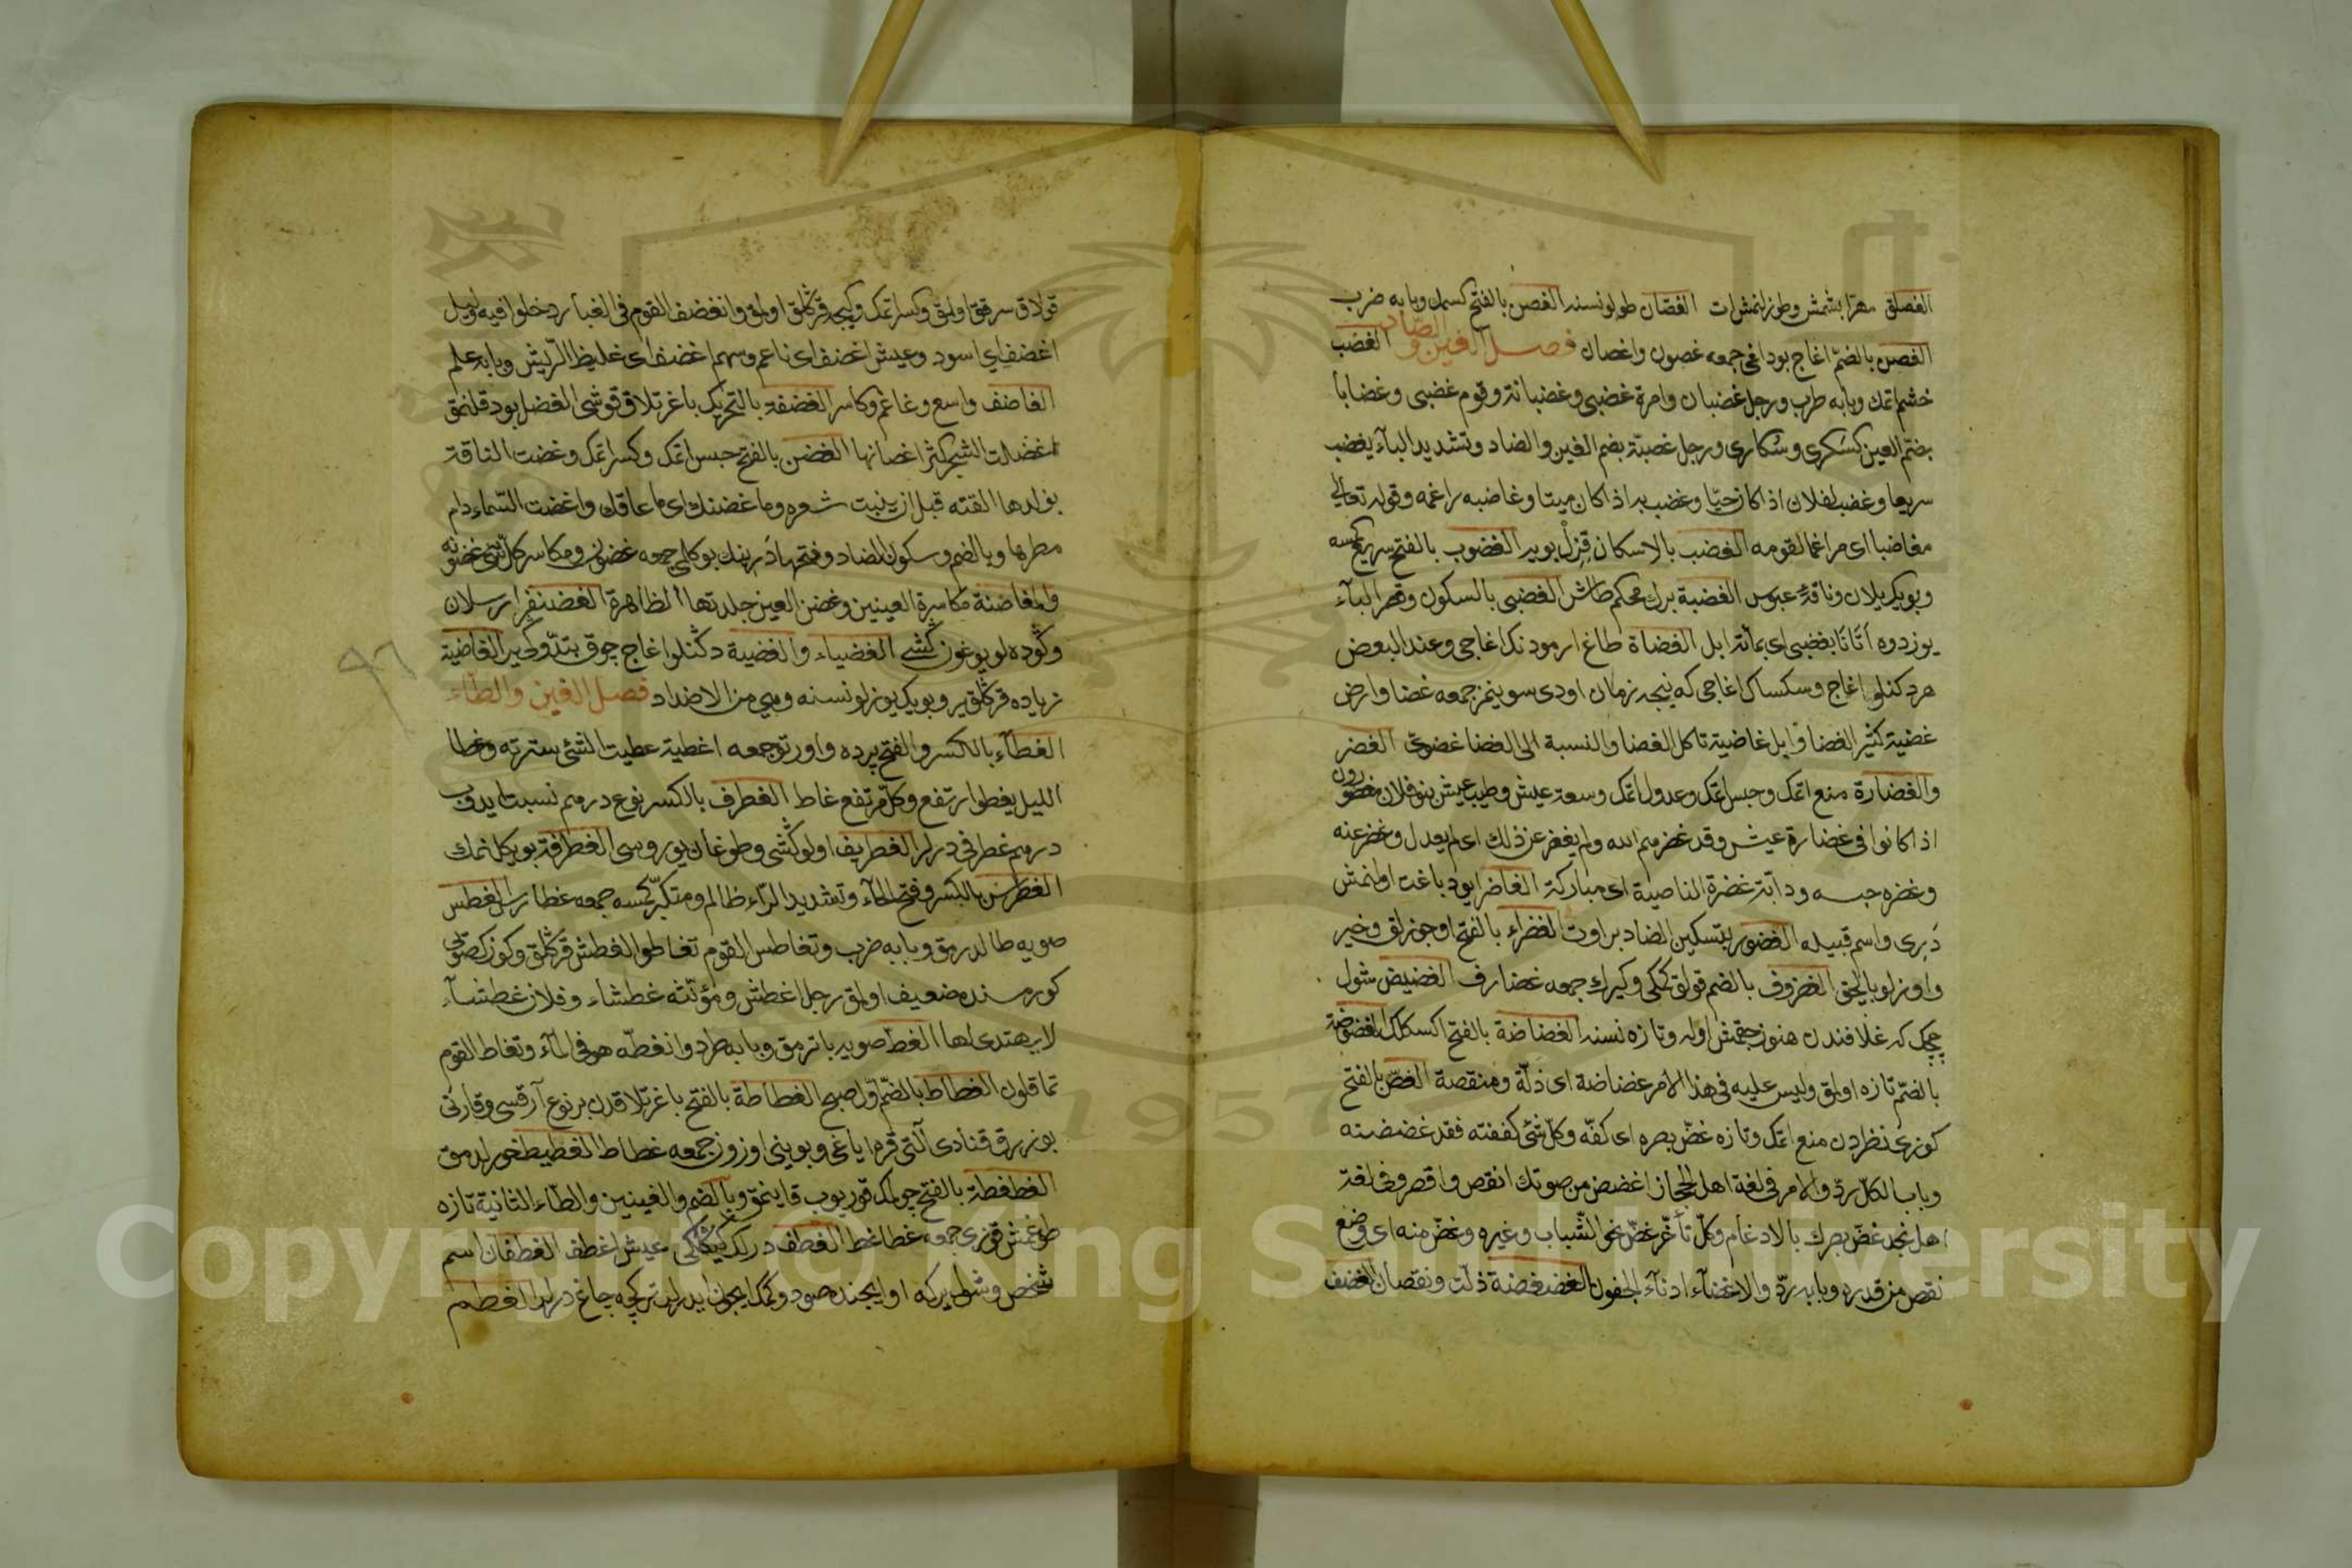 الغصلق مهرا بشمش وطوزلنمش ات الغصان طولو نسنه الغصن بالفتح كسمك وبابه ضرب
الغصن بالضم اغاج بوداغى جمعه غصون واغصان فصل الغين والضاد الغضب
خشم اتمك وبابه طرب ورجل غضبان وامرة غضبى وغضبانة وقوم غضبى وغضابا
بضم الغين كسكرى وسكارى ورجل غضبة بضم الغين والضاد وتشديد الباء يغضب
سريعا وغضب لفلان اذا كان حيا وغضب به اذا كان ميتا وغاضبه راغمه وقوله تعالى
مغاضبا اى مراغما لقومه الغضب بالاسكان قزل بوير الغضوب بالفتح
وبويك يلان وناقة عبوس الغضبة برك محكم طاش الغضبى بالسكون وقصر الباء
يوز دوه اتانا بغضبى اى بمائة ابل الغضاة طاغ ارمودنك اغاجى وعند البعض
هر دكنلو اغاج وسكساك اغاجى كه نيجه زمان اودى سوينمز جمعه غضا وارض
غضية كثير الغضا وابل غاضية تاكل الغضا والنسبة الى الغضا غضوى الغضر
والغضارة منع اتمك وحبس اتمك وعدول اتمك وسعة عيش وطيب عيش بنو فلان مغضورون
اذا كانوا فى غضارة عيش وقد غضرهم الله ولم يغضر عن ذلك اى لم يعدل وغضر عنه
وغضره حبسه ودابة غضرة الناصية اى مباركة الغاضر ايو دباغت اولنمش
درى واسم قبيله الغضور بتسكين الضاد بر اوت الغضراء بالفتح اوجوزلق وخير
واوزلو بالجق الغضروف بالضم قولق ككى وكيرك جمعه غضارف الغضيض شول
چچك كه غلافندن هنوز چقمش اوله وتازه نسنه الغضاضة بالفتح اكسكلك الغضوضة
بالضم تازه اولمق وليس عليه فى هذا الامر غضاضة اى ذلة ومنقصة الغض بالفتح
كوزى نظردن منع اتمك وتازه غض بصره اى كفه وكل شئ كففته فقد غضضته
وباب الكل رد والامر فى لغة اهل الحجاز اغضض من صوتك انقص واقصر وفى لغة
اهل نجد غض بصرك بالادغام وكل تأغر غض نحو الشباب وغيره وغض منه اى وضع
نقص من قدره وبابه رد والاغضاء ادناء الجفون الغضغضة ذلت ونقصان الغضف
قولاق سرقق اولمق وكسر اتمك وكيجه قرڭلق اولمق وانغضف القوم فى الغبار دخلوا فيه وليل
اغضف اى اسود وعيش اغضف اى ناعم وسهم اغضف اى غليظ الريش وبابه علم
الغاضف واسع وغاغم وكاسر الغضفة بالتحريك باغرتلاق قوشى الغضل بودقلنمق
اغضلت الشجر كثر اغصانها الغضن بالفتح حبس اتمك وكسر اتمك وغضت الناقة
بولدها القته قبل ان ينبت شعره وما غضنك اى ما عاقك واغضت السماء دام
مطرها وبالضم وسكون الضاد وفتحها درينك بوكلمى جمعه غضون ومكاسر كل شئ غضونه
والمغاضنة مكاسرة العينين وغضن العين جلدتها الظاهرة الغضنفر ارسلان
وكوده لو يوغون كشى الغضياء والغضية دكنلو اغاج چوق بتدوكى ير الغاضية
زياده قرڭلق ير وبويك يوزلو نسنه وهى من الاضداد فصل الغين والطاء
الغطاء بالكسر والفتح پرده واورتو جمعه اغطية غطيت الشئ سترته وغطا
الليل يغطو ارتفع وكل مرتفع غاط الغطرف بالكسر نوع درهم نسبت ايدوب
درهم غطرفى ديرلر الغطريف اولو كشى وطوغان يوروسى الغطرفة بويكلنمك
الغطرس بالكسر وفتح الطاء وتشديد الراء ظالم ومتكبر كسه جمعه غطارس الغطس
صويه طالدرمق وبابه ضرب وتغاطس القوم تغاطوا الغطش قرڭلق وكوز
كورمسنده ضعيف اولمق رجل اغطش ومؤنثه غطشاء وفلان غطشاء
لا يهتدى لها الغط صويه باترمق وبابه رد وانغطه هو فى الماء وتغاط القوم
تماقلون الغطاط بالضم اول صبح الغطاطة بالفتح باغرتلاقدن بر نوع ارقسى وقارنى
بوز رق قنادى التى قره اياغى وبوينى اوزون جمعه غطاط الغطيط خورلدمق
الغطغطة بالفتح چولمك قوريوب قاينمق وبالضم والغينين والطاء الثانية تازه
طوغمش قوزى جمعه غطاغط الغطف ديرلك عيش اغطف الغطفان اسم
شخص وشول يركه اوايچنده صود وكمك ايچون ايدرلر تركچه چاغ ديرلر الغطم
٩٦